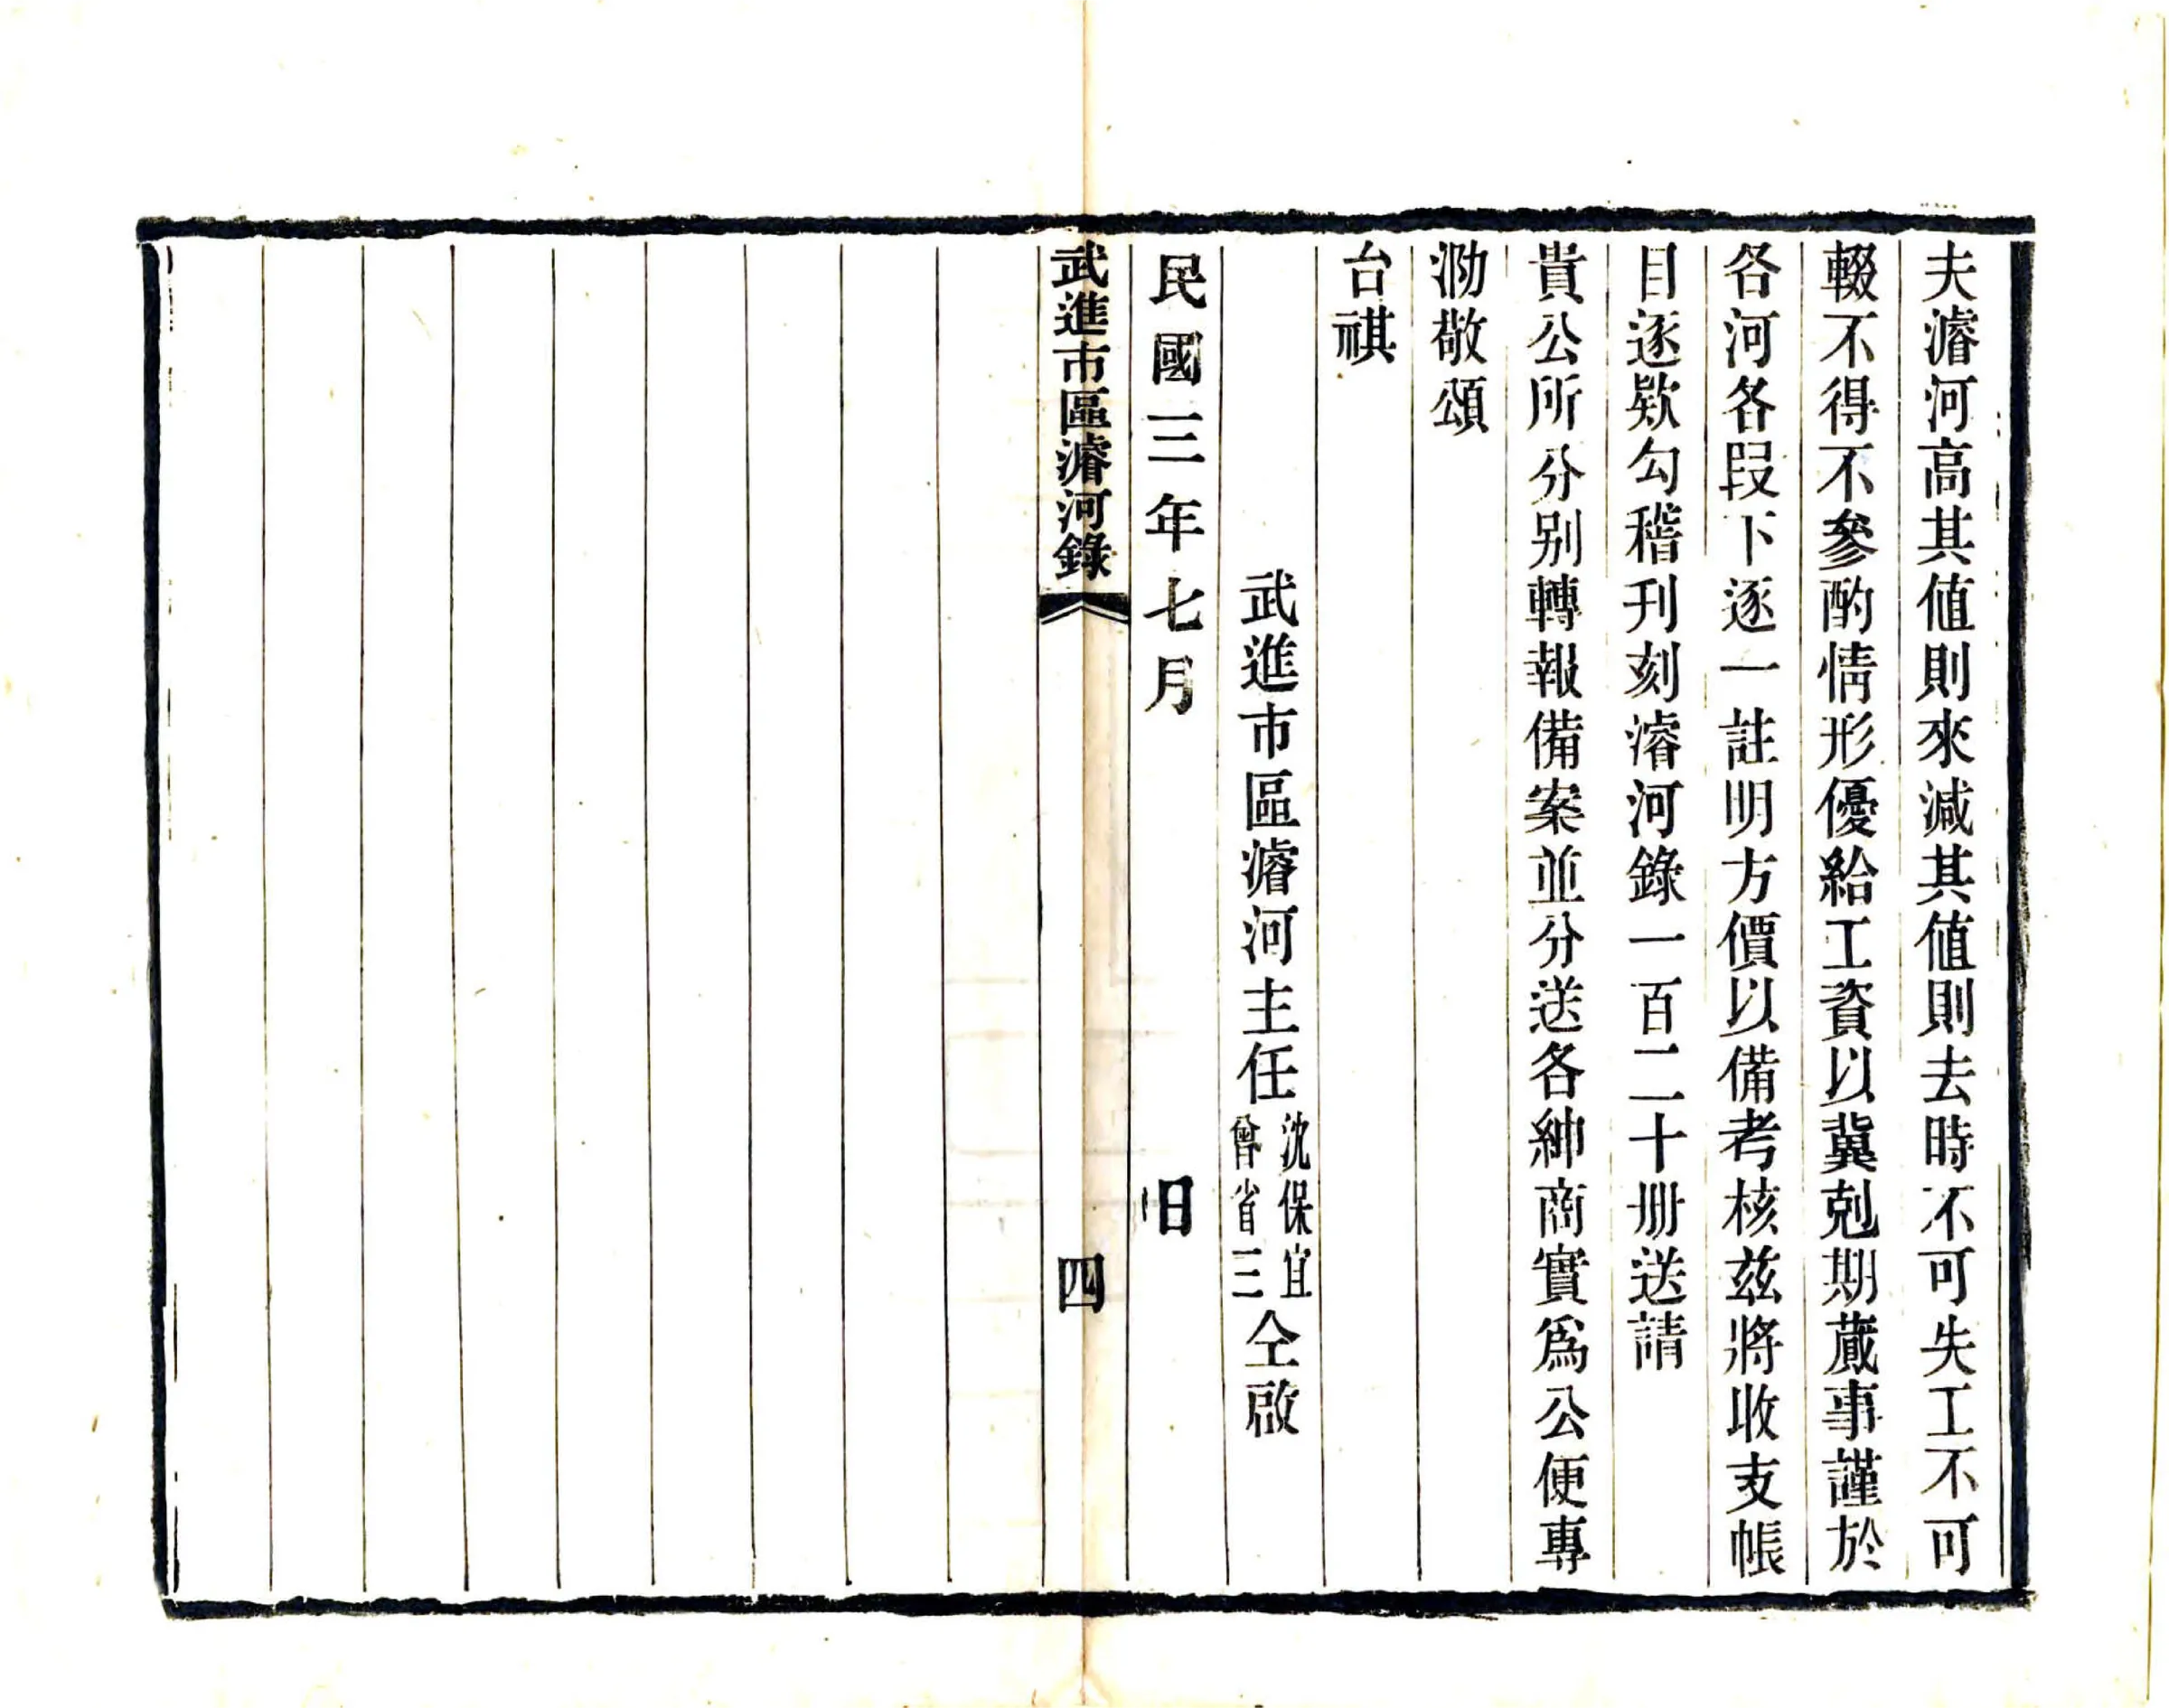 夫濬河高其値則來減其値則去時不可失工不可
輟不得不參酌情形優給工資以冀剋期蕆事謹於
各河各段下逐一註明方價以備考核茲將收支帳
目逐欵勾稽刋刻濬河錄一百二十册送請
貴公所分别轉報備案並分送各紳商實爲公便專
泐敬頌
台祺
武進市區濬河主任沈保宜曾省三仝啟
民國三年七月日
武進市區濬河錄 四